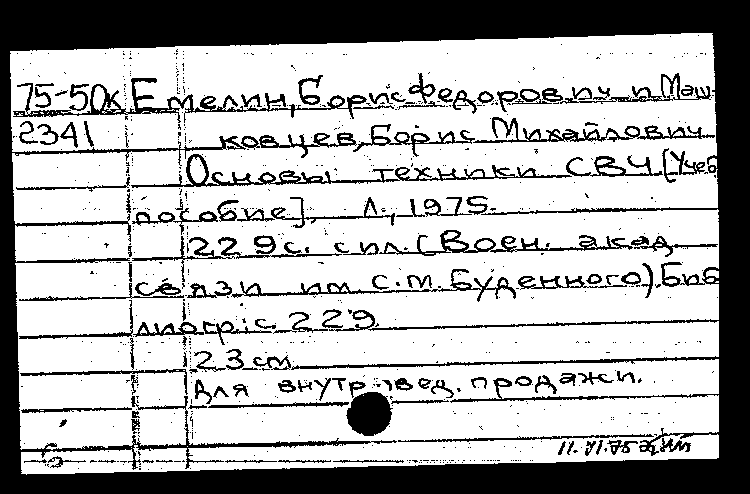 75-50к Емелин, Борис Федорович и Маш-
2341 ковцев, Борис Михайлович
Основы техники СВЧ [Учеб
пособие]. Л., 1975.
229 с. с ил. (Воен. акад.
связи им. С.М. Буденного) Биб
лиогр: с. 229
23 см
Для внутр-вед. продажи.
б 11.VI.75